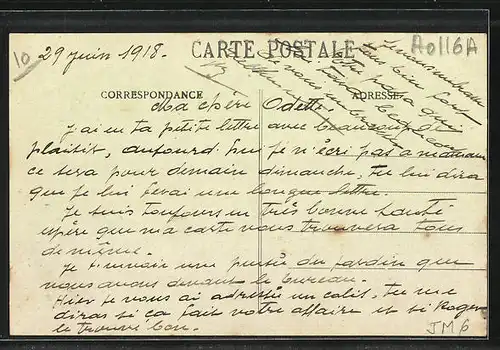 10
29 Juin 1918.
CARTE POSTALE
A0116A
CORRESPONDANCE
ADRESSE
Ma chère Odette
J'ai eu ta petite lettre avec beaucoup de
plaisir, aujourd'hui je n'écri pas a maman
ce sera pour demain dimanche, tu lui dira
que je lui ferai une longue lettre.
Je suis toujours en très bonne santé
espère que ma carte vous trouvera tous
de même.
Je t'envoie une partie du jardin que
nous avons devant le bureau.
Hier je vous ai adressé un colis, tu me
diras si ca fait votre affaire et si Roger
le trouve bon.
JM6